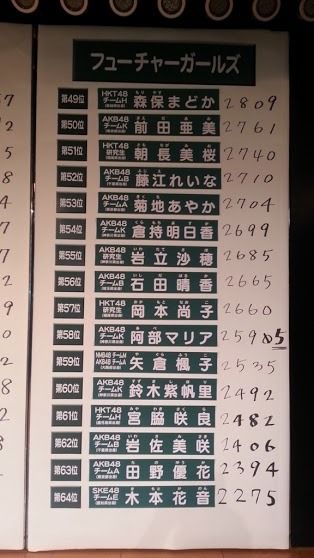 フューチャーガールズ
第49位 HKT48 チームH 森保まどか 2809
第50位 AKB48 チームK 前田亜美 2761
第51位 HKT48 研究生 朝長美桜 2740
第52位 AKB48 チームB 藤江れいな 2710
第53位 AKB48 チームA 菊地あやか 2704
第54位 AKB48 チームK 倉持明日香 2699
第55位 AKB48 研究生 岩立沙穂 2685
第56位 AKB48 チームB 石田晴香 2665
第57位 HKT48 研究生 岡本尚子 2660
第58位 AKB48 チームK 阿部マリア
第59位 NMB48 チームM AKB48 チームA 矢倉楓子 2535
第60位 AKB48 チームK 鈴木紫帆里 2492
第61位 HKT48 チームH 宮脇咲良 2482
第62位 AKB48 チームB 岩佐美咲 2406
第63位 AKB48 チームA 田野優花 2394
第64位 SKE48 チームE 木本花音 2275